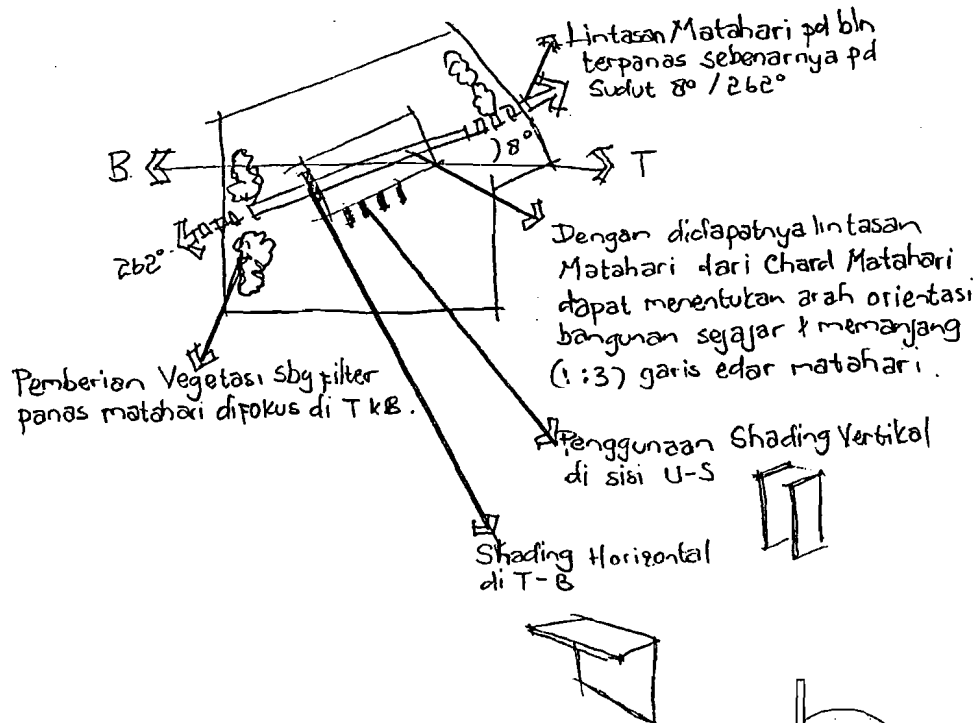 Lintasan Matahari pd bln
terpanas sebenarnya pd
Sudut 8° / 262°
B
T
8°
262°
Dengan didapatnya lintasan
Matahari dari Chard Matahari
dapat menentukan arah orientasi
bangunan sejajar & memanjang
(1:3) garis edar matahari.
Pemberian Vegetasi sbg filter
panas matahari difokus di T k B.
Penggunaan Shading Vertikal
di sisi U-S
Shading Horizontal
di T-B